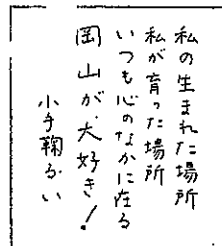 私の生まれた場所
私が育った場所
いつも心のなかに在る
岡山が大好き！
小手鞠るい